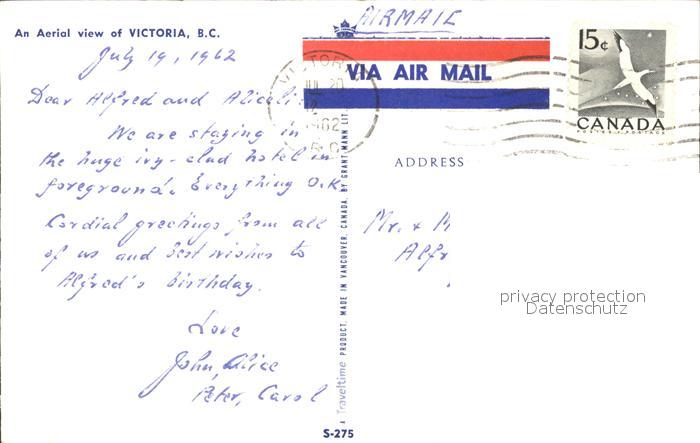 An Aerial view of VICTORIA, B.C.
July 19, 1962
Dear Alfred and
We are staying in
the huge ivy-clad hotel in
foreground. Everything O.K.
Cordial greetings from all
of us and best wishes to
Alfred's birthday.
Love
John, Alice
Peter, Carol
AIRMAIL
VIA AIR MAIL
VICTORIA
1962
B.C.
15¢
CANADA
POSTES POSTAGE
ADDRESS
Mr. + M
Alfr
privacy protection
Datenschutz
A Traveltime PRODUCT, MADE IN VANCOUVER, CANADA, BY GRANT-MANN LIT
S-275